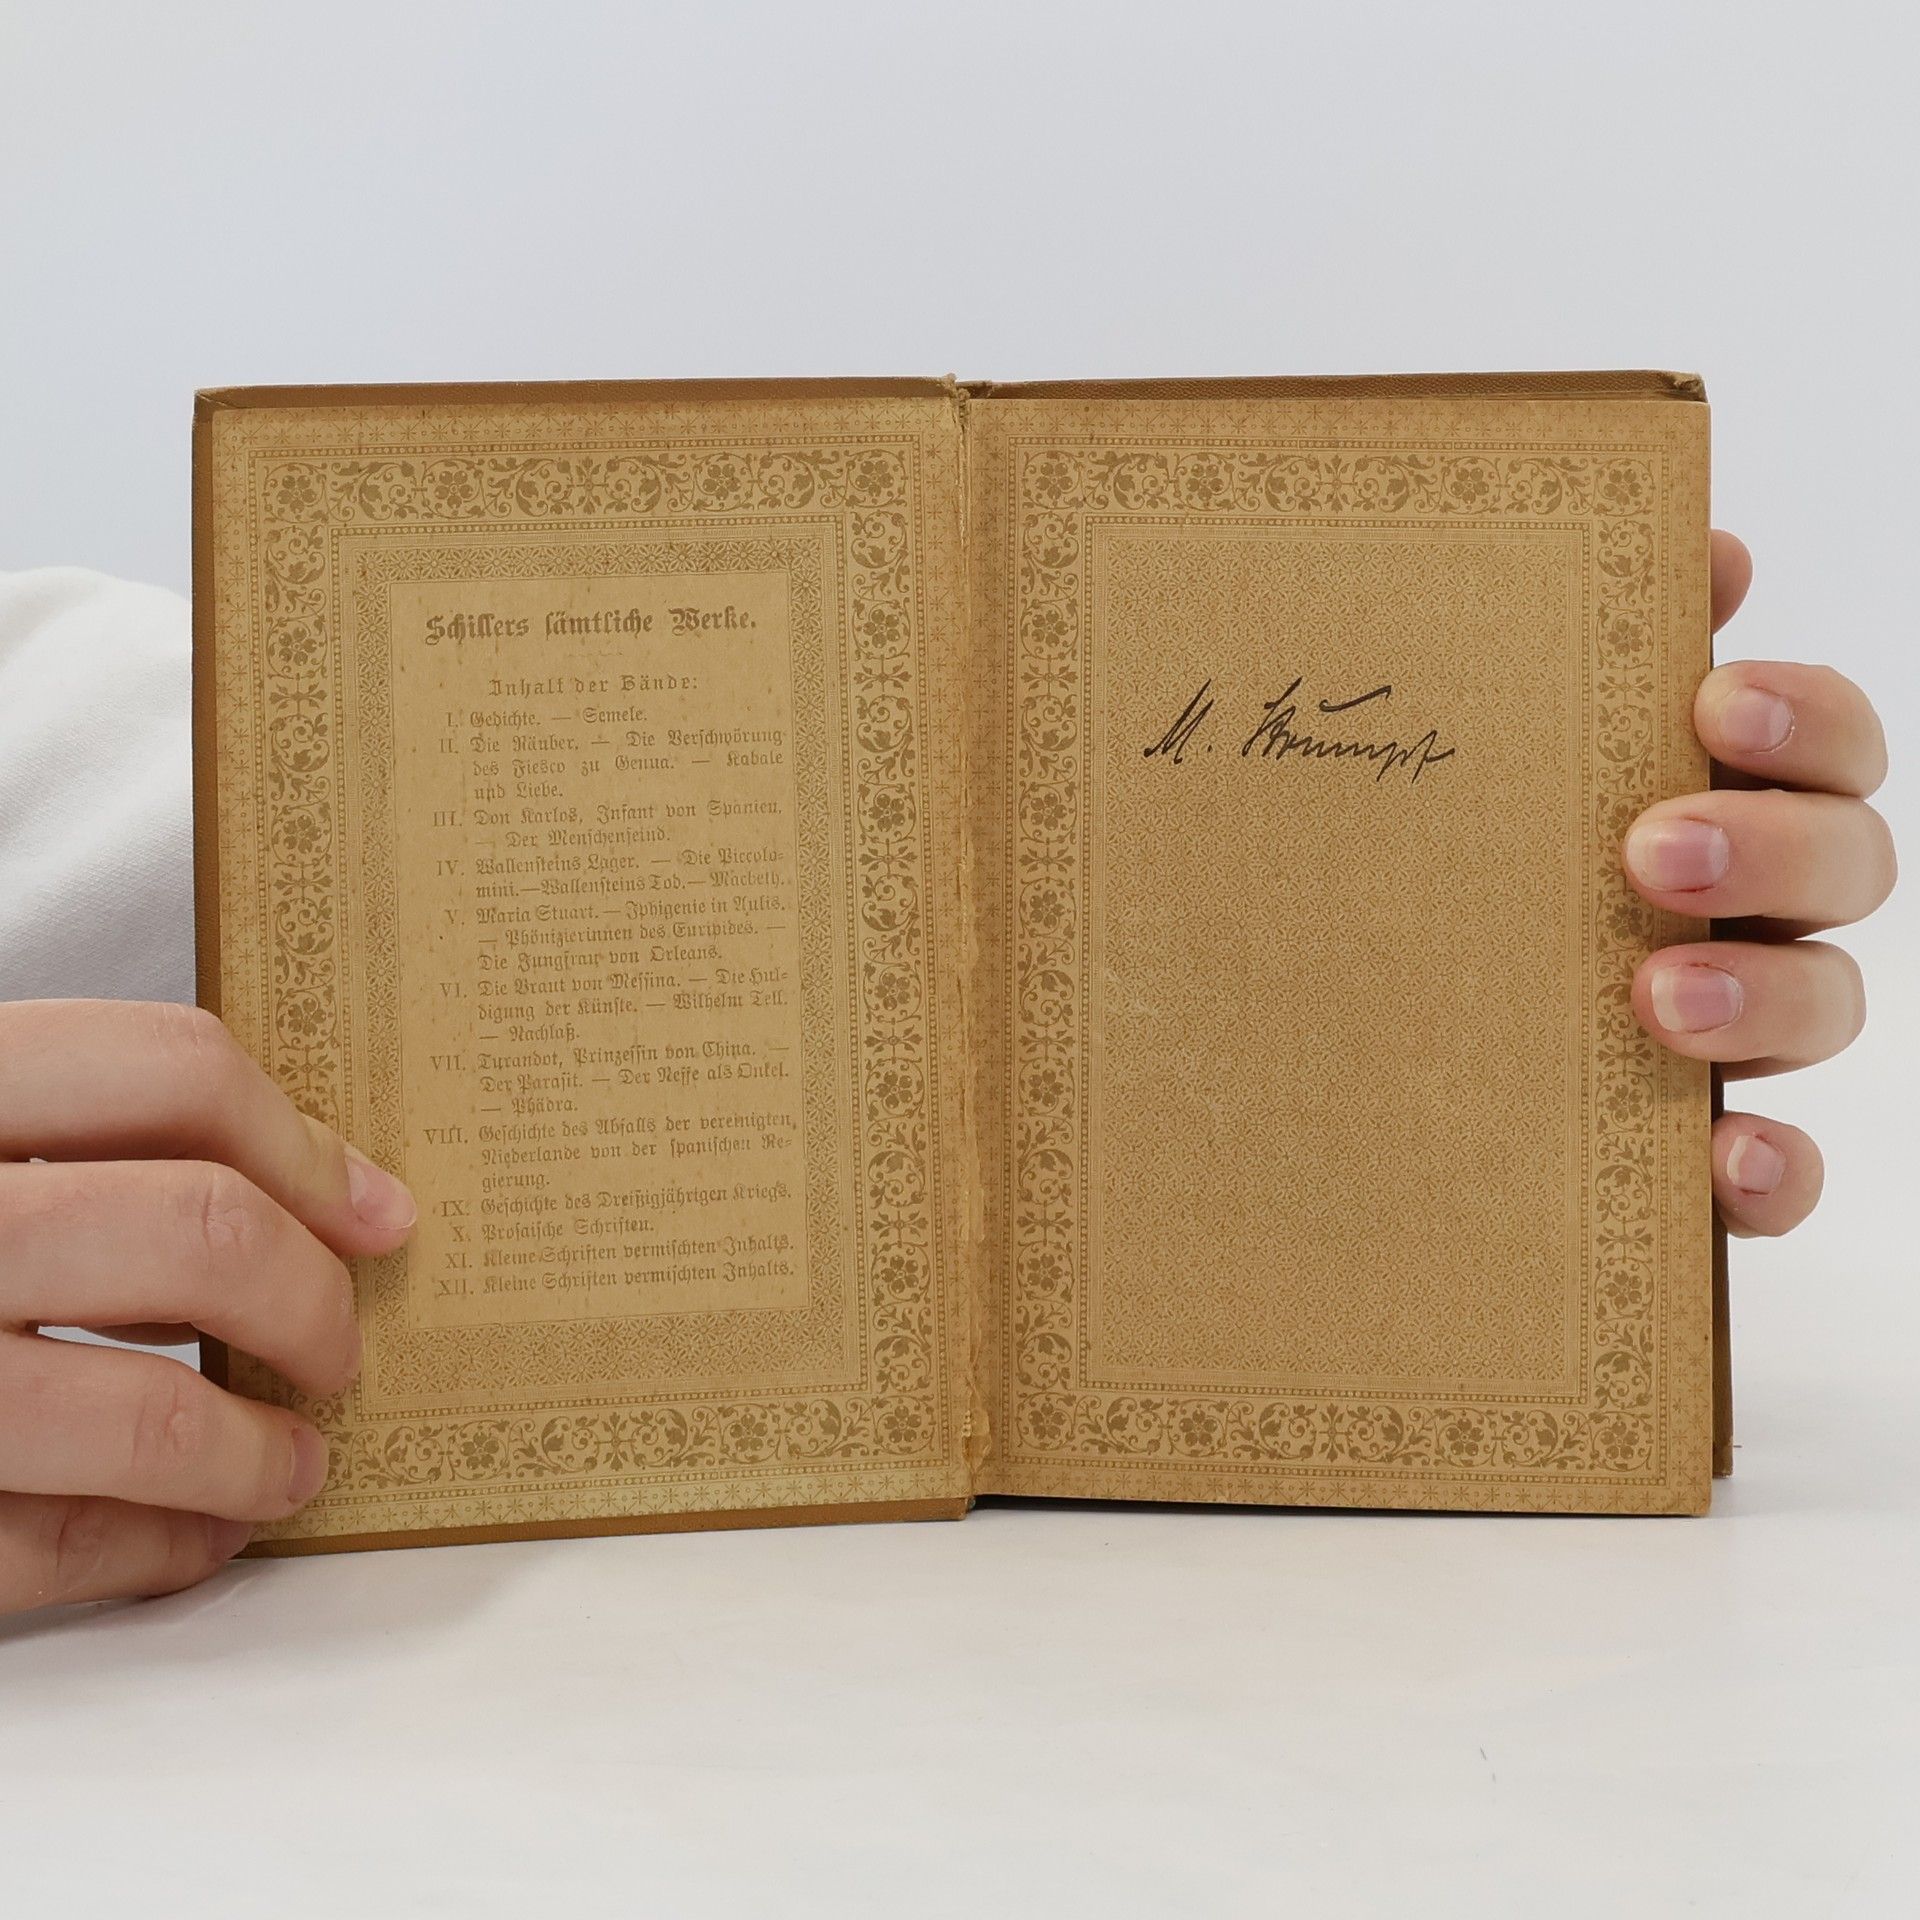 Schillers sämtliche Werke.
Inhalt der Bände:
I. Gedichte. — Semele.
II. Die Räuber. — Die Verschwörung
des Fiesco zu Genua. — Kabale
und Liebe.
III. Don Karlos, Infant von Spanien.
— Der Menschenfeind.
IV. Wallensteins Lager. — Die Piccolo-
mini. — Wallensteins Tod. — Macbeth.
V. Maria Stuart. — Iphigenie in Aulis.
— Phönizierinnen des Euripides. —
Die Jungfrau von Orleans.
VI. Die Braut von Messina. — Die Hul-
digung der Künste. — Wilhelm Tell.
— Nachlaß.
VII. Turandot, Prinzessin von China. —
Der Parasit. — Der Neffe als Onkel.
— Phädra.
VIII. Geschichte des Abfalls der vereinigten
Niederlande von der spanischen Re-
gierung.
IX. Geschichte des Dreißigjährigen Kriegs.
X. Prosaische Schriften.
XI. Kleine Schriften vermischten Inhalts.
XII. Kleine Schriften vermischten Inhalts.
M. Strumpf